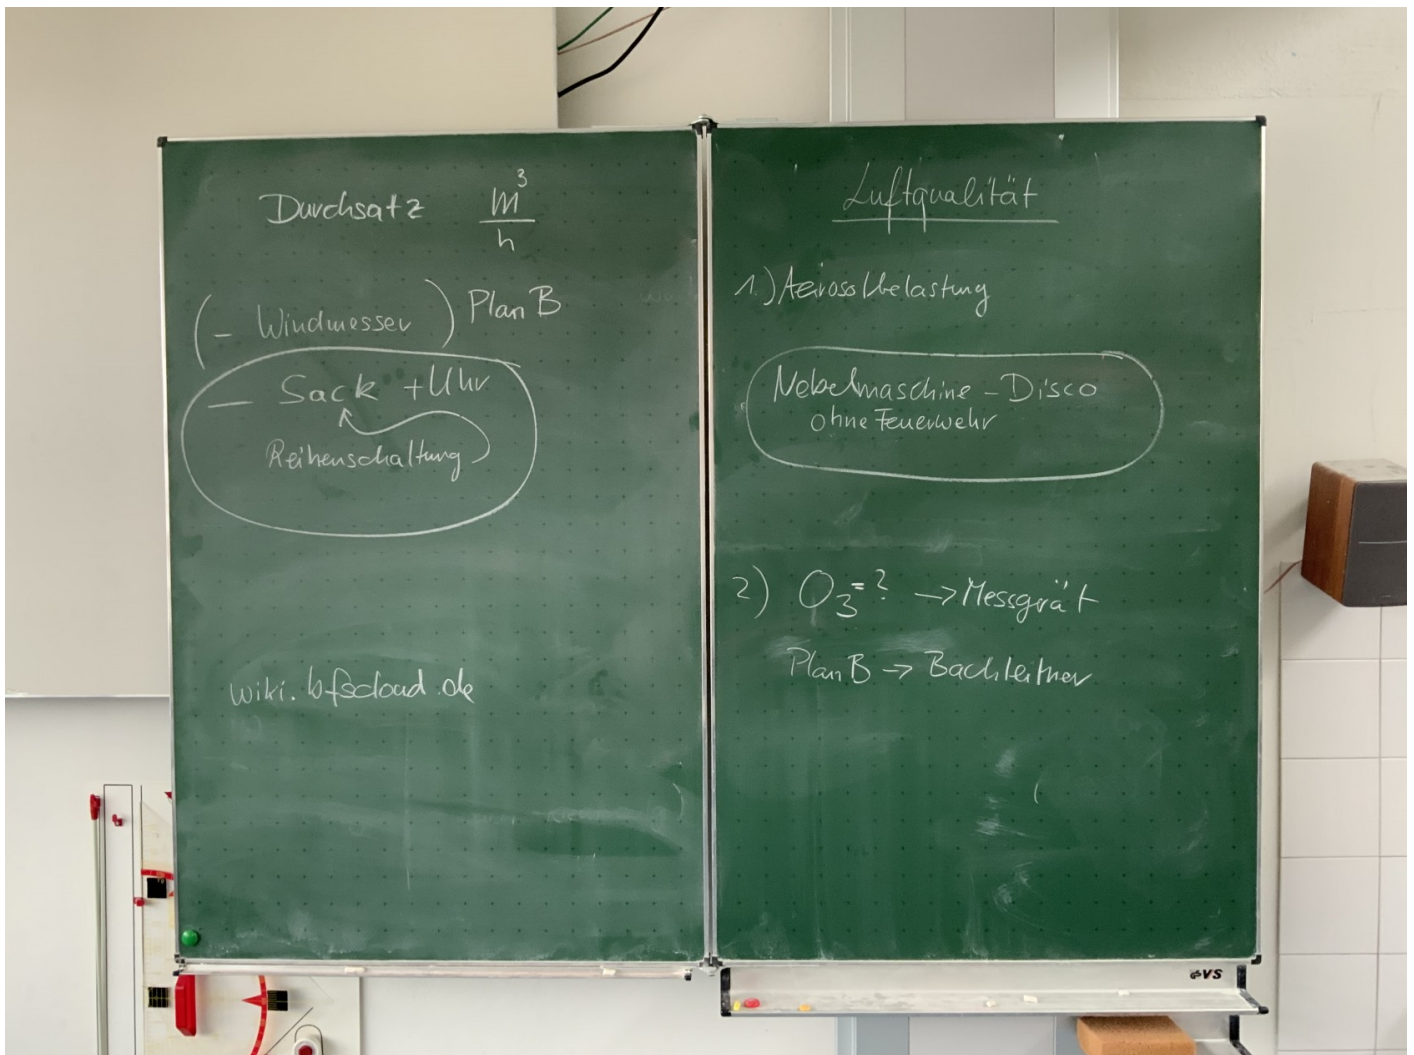 Durchsatz m³/h
(– Windmesser) Plan B
– Sack + Uhr
Reihenschaltung
wiki.bfscloud.de
Luftqualität
1.) Aerosolbelastung
Nebelmaschine – Disco
ohne Feuerwehr
2) O₃ = ? → Messgrät
Plan B → Bachleitner
VS